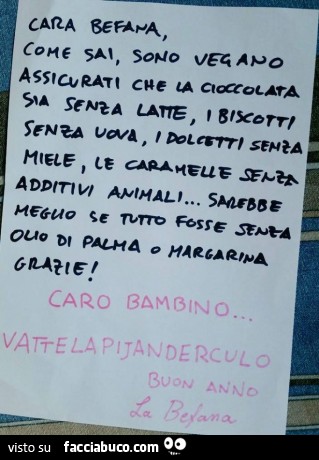 CARA BEFANA,
COME SAI, SONO VEGANO
ASSICURATI CHE LA CIOCCOLATA
SIA SENZA LATTE, I BISCOTTI
SENZA UOVA, I DOLCETTI SENZA
MIELE, LE CARAMELLE SENZA
ADDITIVI ANIMALI... SAREBBE
MEGLIO SE TUTTO FOSSE SENZA
OLIO DI PALMA O MARGARINA
GRAZIE!
CARO BAMBINO...
VATTELAPIJANDERCULO
BUON ANNO
La Befana
visto su facciabuco.com